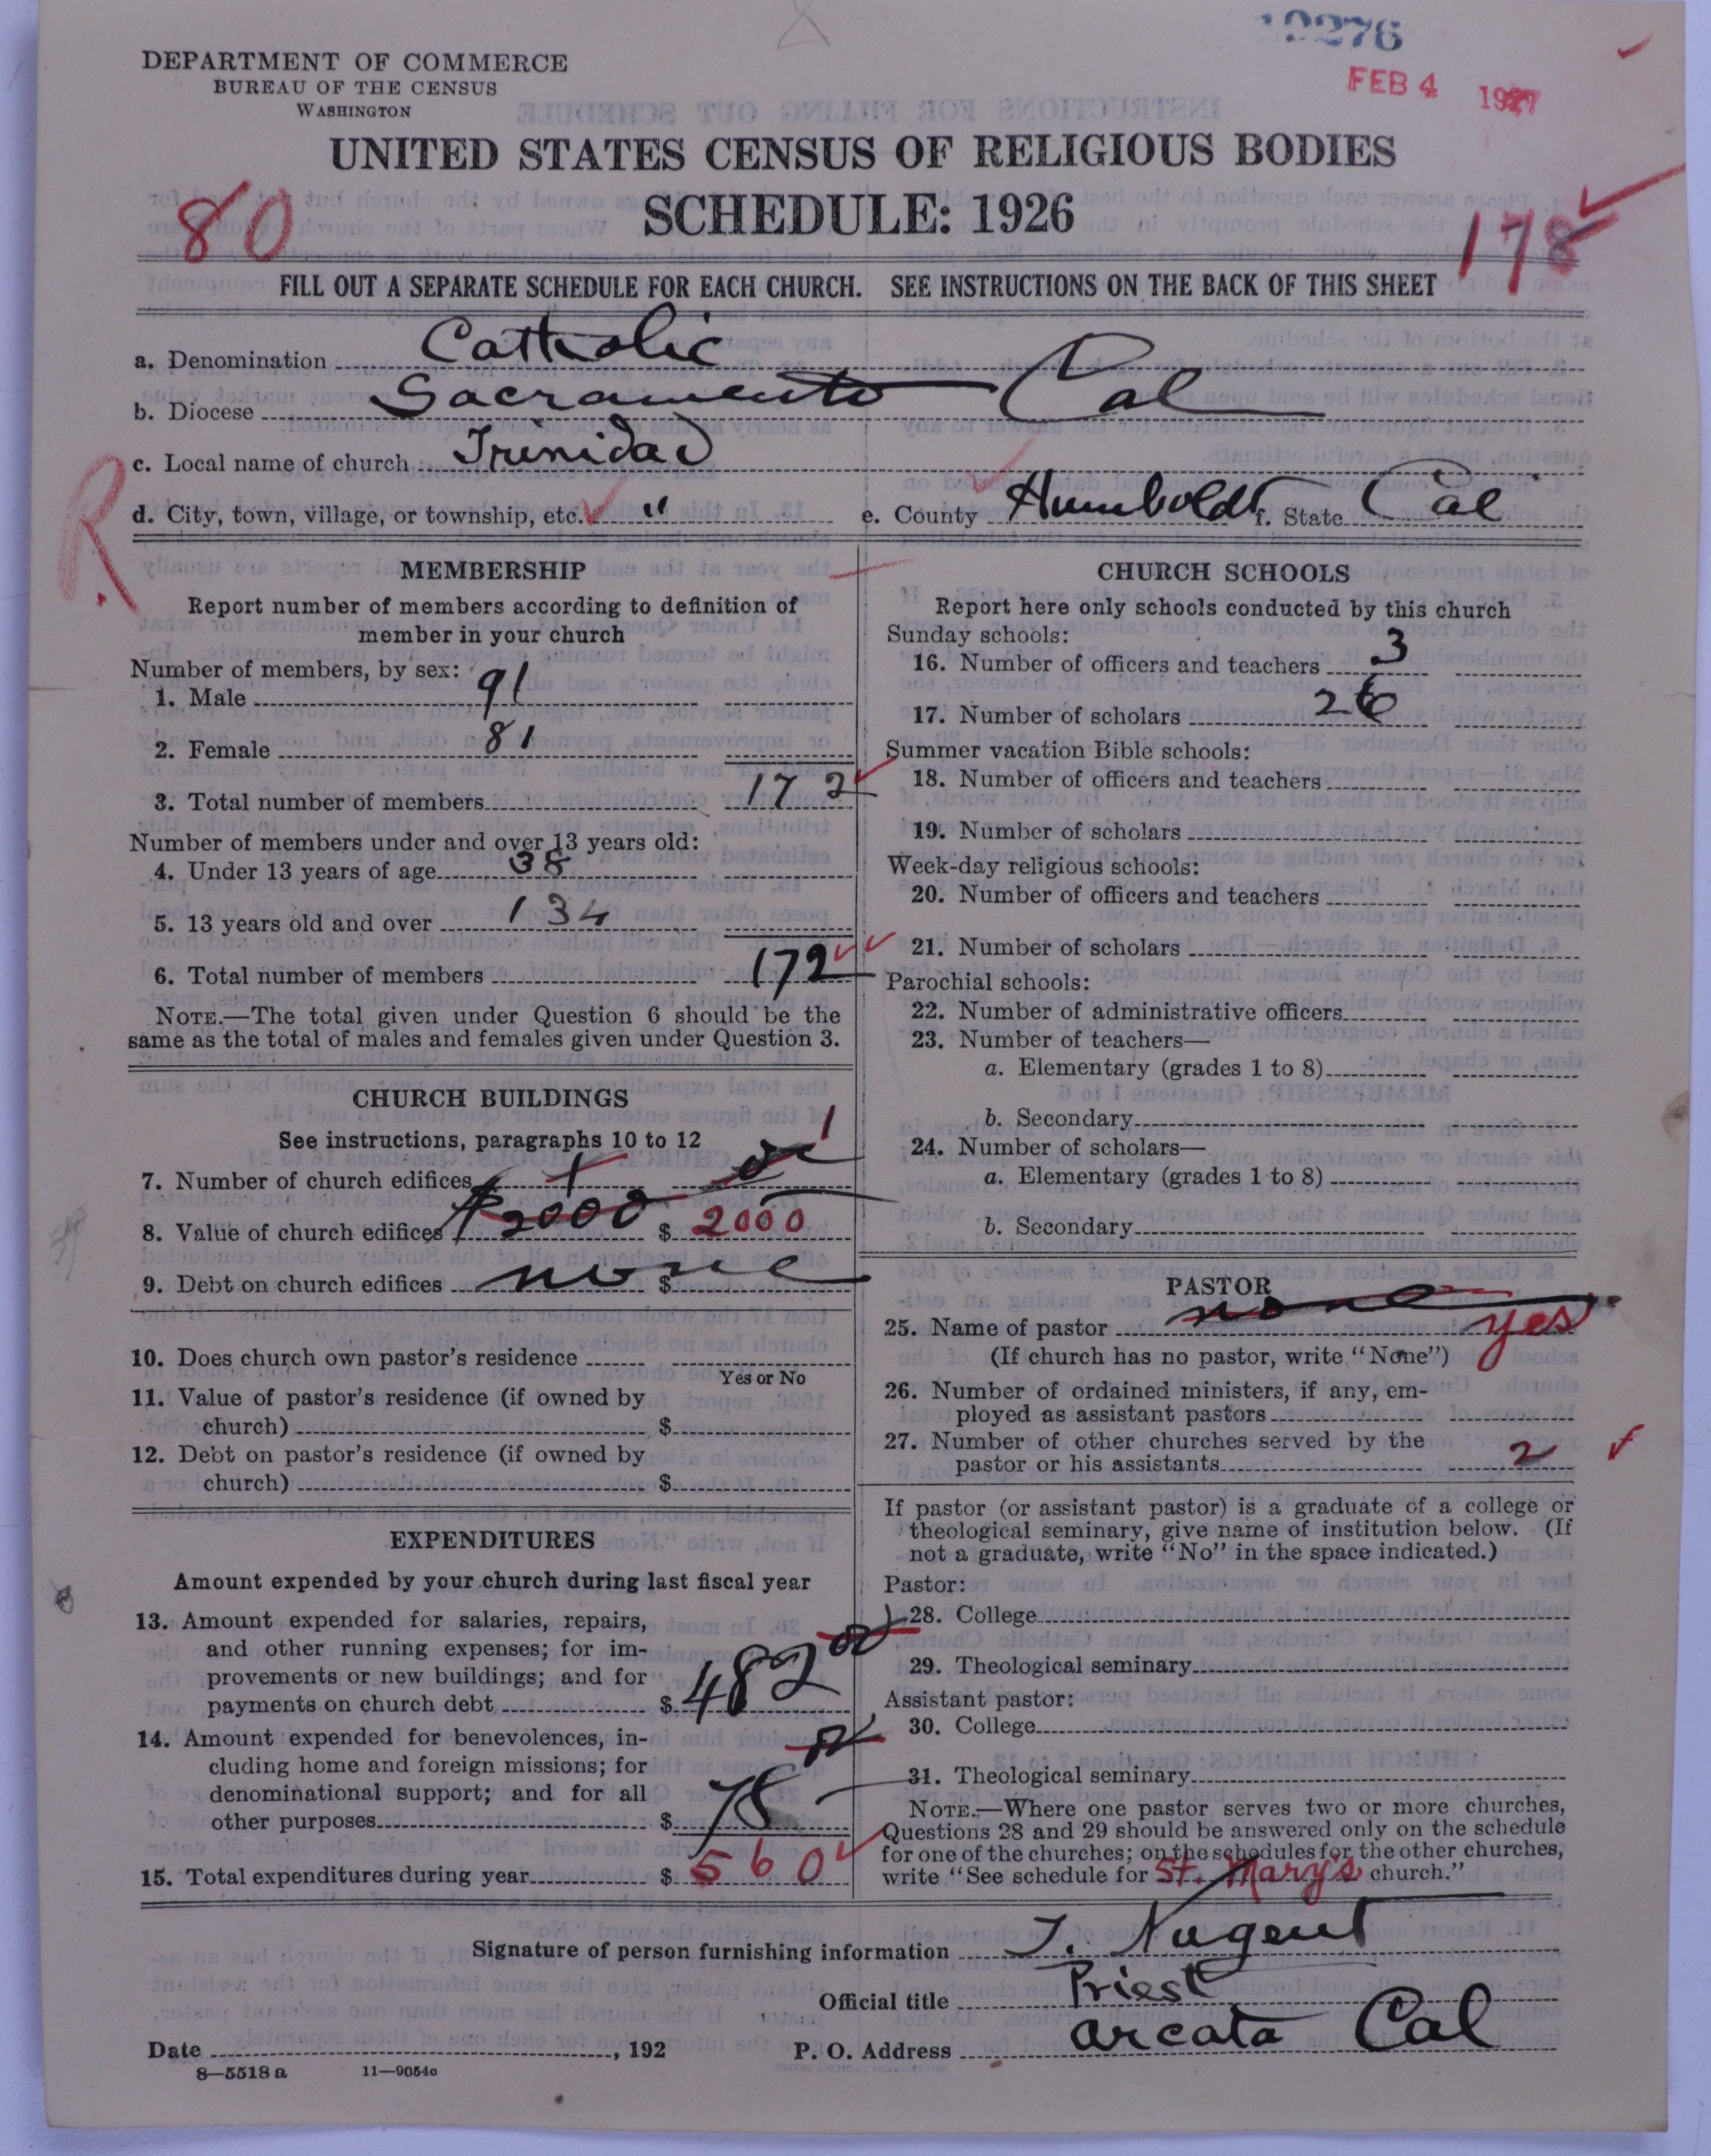 DEPARTMENT OF COMMERCE
BUREAU OF THE CENSUS
WASHINGTON
FEB 4 1927
UNITED STATES CENSUS OF RELIGIOUS BODIES
SCHEDULE: 1926
80
178
FILL OUT A SEPARATE SCHEDULE FOR EACH CHURCH. SEE INSTRUCTIONS ON THE BACK OF THIS SHEET
a. Denomination Catholic
b. Diocese Sacramento Cal
c. Local name of church Trinidad
d. City, town, village, or township, etc. " e. County Humboldt f. State Cal
R
MEMBERSHIP
Report number of members according to definition of
member in your church
Number of members, by sex:
1. Male 91
2. Female 81
3. Total number of members 172
Number of members under and over 13 years old:
4. Under 13 years of age 38
5. 13 years old and over 134
6. Total number of members 172
NOTE.—The total given under Question 6 should be the
same as the total of males and females given under Question 3.
CHURCH BUILDINGS
See instructions, paragraphs 10 to 12
7. Number of church edifices 1 1
8. Value of church edifices $2000 $ 2000
9. Debt on church edifices none $
10. Does church own pastor's residence
Yes or No
11. Value of pastor's residence (if owned by
church) $
12. Debt on pastor's residence (if owned by
church) $
EXPENDITURES
Amount expended by your church during last fiscal year
13. Amount expended for salaries, repairs,
and other running expenses; for im-
provements or new buildings; and for
payments on church debt $ 482 00
14. Amount expended for benevolences, in-
cluding home and foreign missions; for
denominational support; and for all
other purposes $ 78
15. Total expenditures during year $ 560
CHURCH SCHOOLS
Report here only schools conducted by this church
Sunday schools:
16. Number of officers and teachers 3
17. Number of scholars 26
Summer vacation Bible schools:
18. Number of officers and teachers
19. Number of scholars
Week-day religious schools:
20. Number of officers and teachers
21. Number of scholars
Parochial schools:
22. Number of administrative officers
23. Number of teachers—
a. Elementary (grades 1 to 8)
b. Secondary
24. Number of scholars—
a. Elementary (grades 1 to 8)
b. Secondary
PASTOR
25. Name of pastor none yes
(If church has no pastor, write "None")
26. Number of ordained ministers, if any, em-
ployed as assistant pastors
27. Number of other churches served by the
pastor or his assistants 2
If pastor (or assistant pastor) is a graduate of a college or
theological seminary, give name of institution below. (If
not a graduate, write "No" in the space indicated.)
Pastor:
28. College
29. Theological seminary
Assistant pastor:
30. College
31. Theological seminary
NOTE.—Where one pastor serves two or more churches,
Questions 28 and 29 should be answered only on the schedule
for one of the churches; on the schedules for the other churches,
write "See schedule for St. Mary's church."
Signature of person furnishing information T. Nugent
Official title Priest
Date , 192 P. O. Address Arcata Cal
8—5518 a 11—9054c